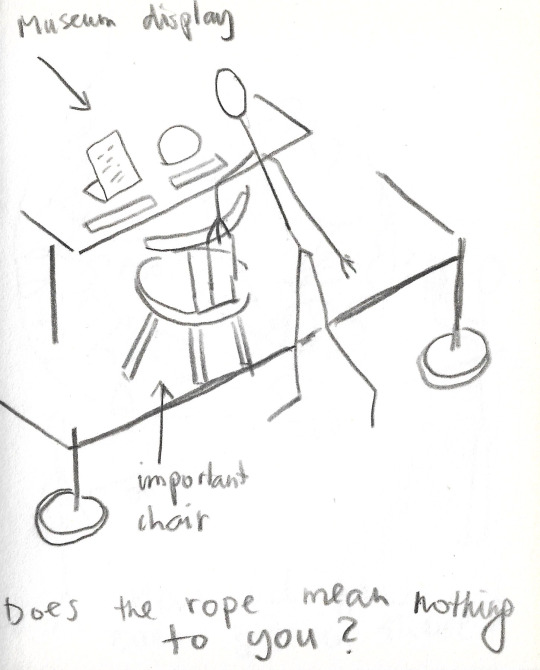 Museum display
important
chair
Does the rope mean nothing
to you?